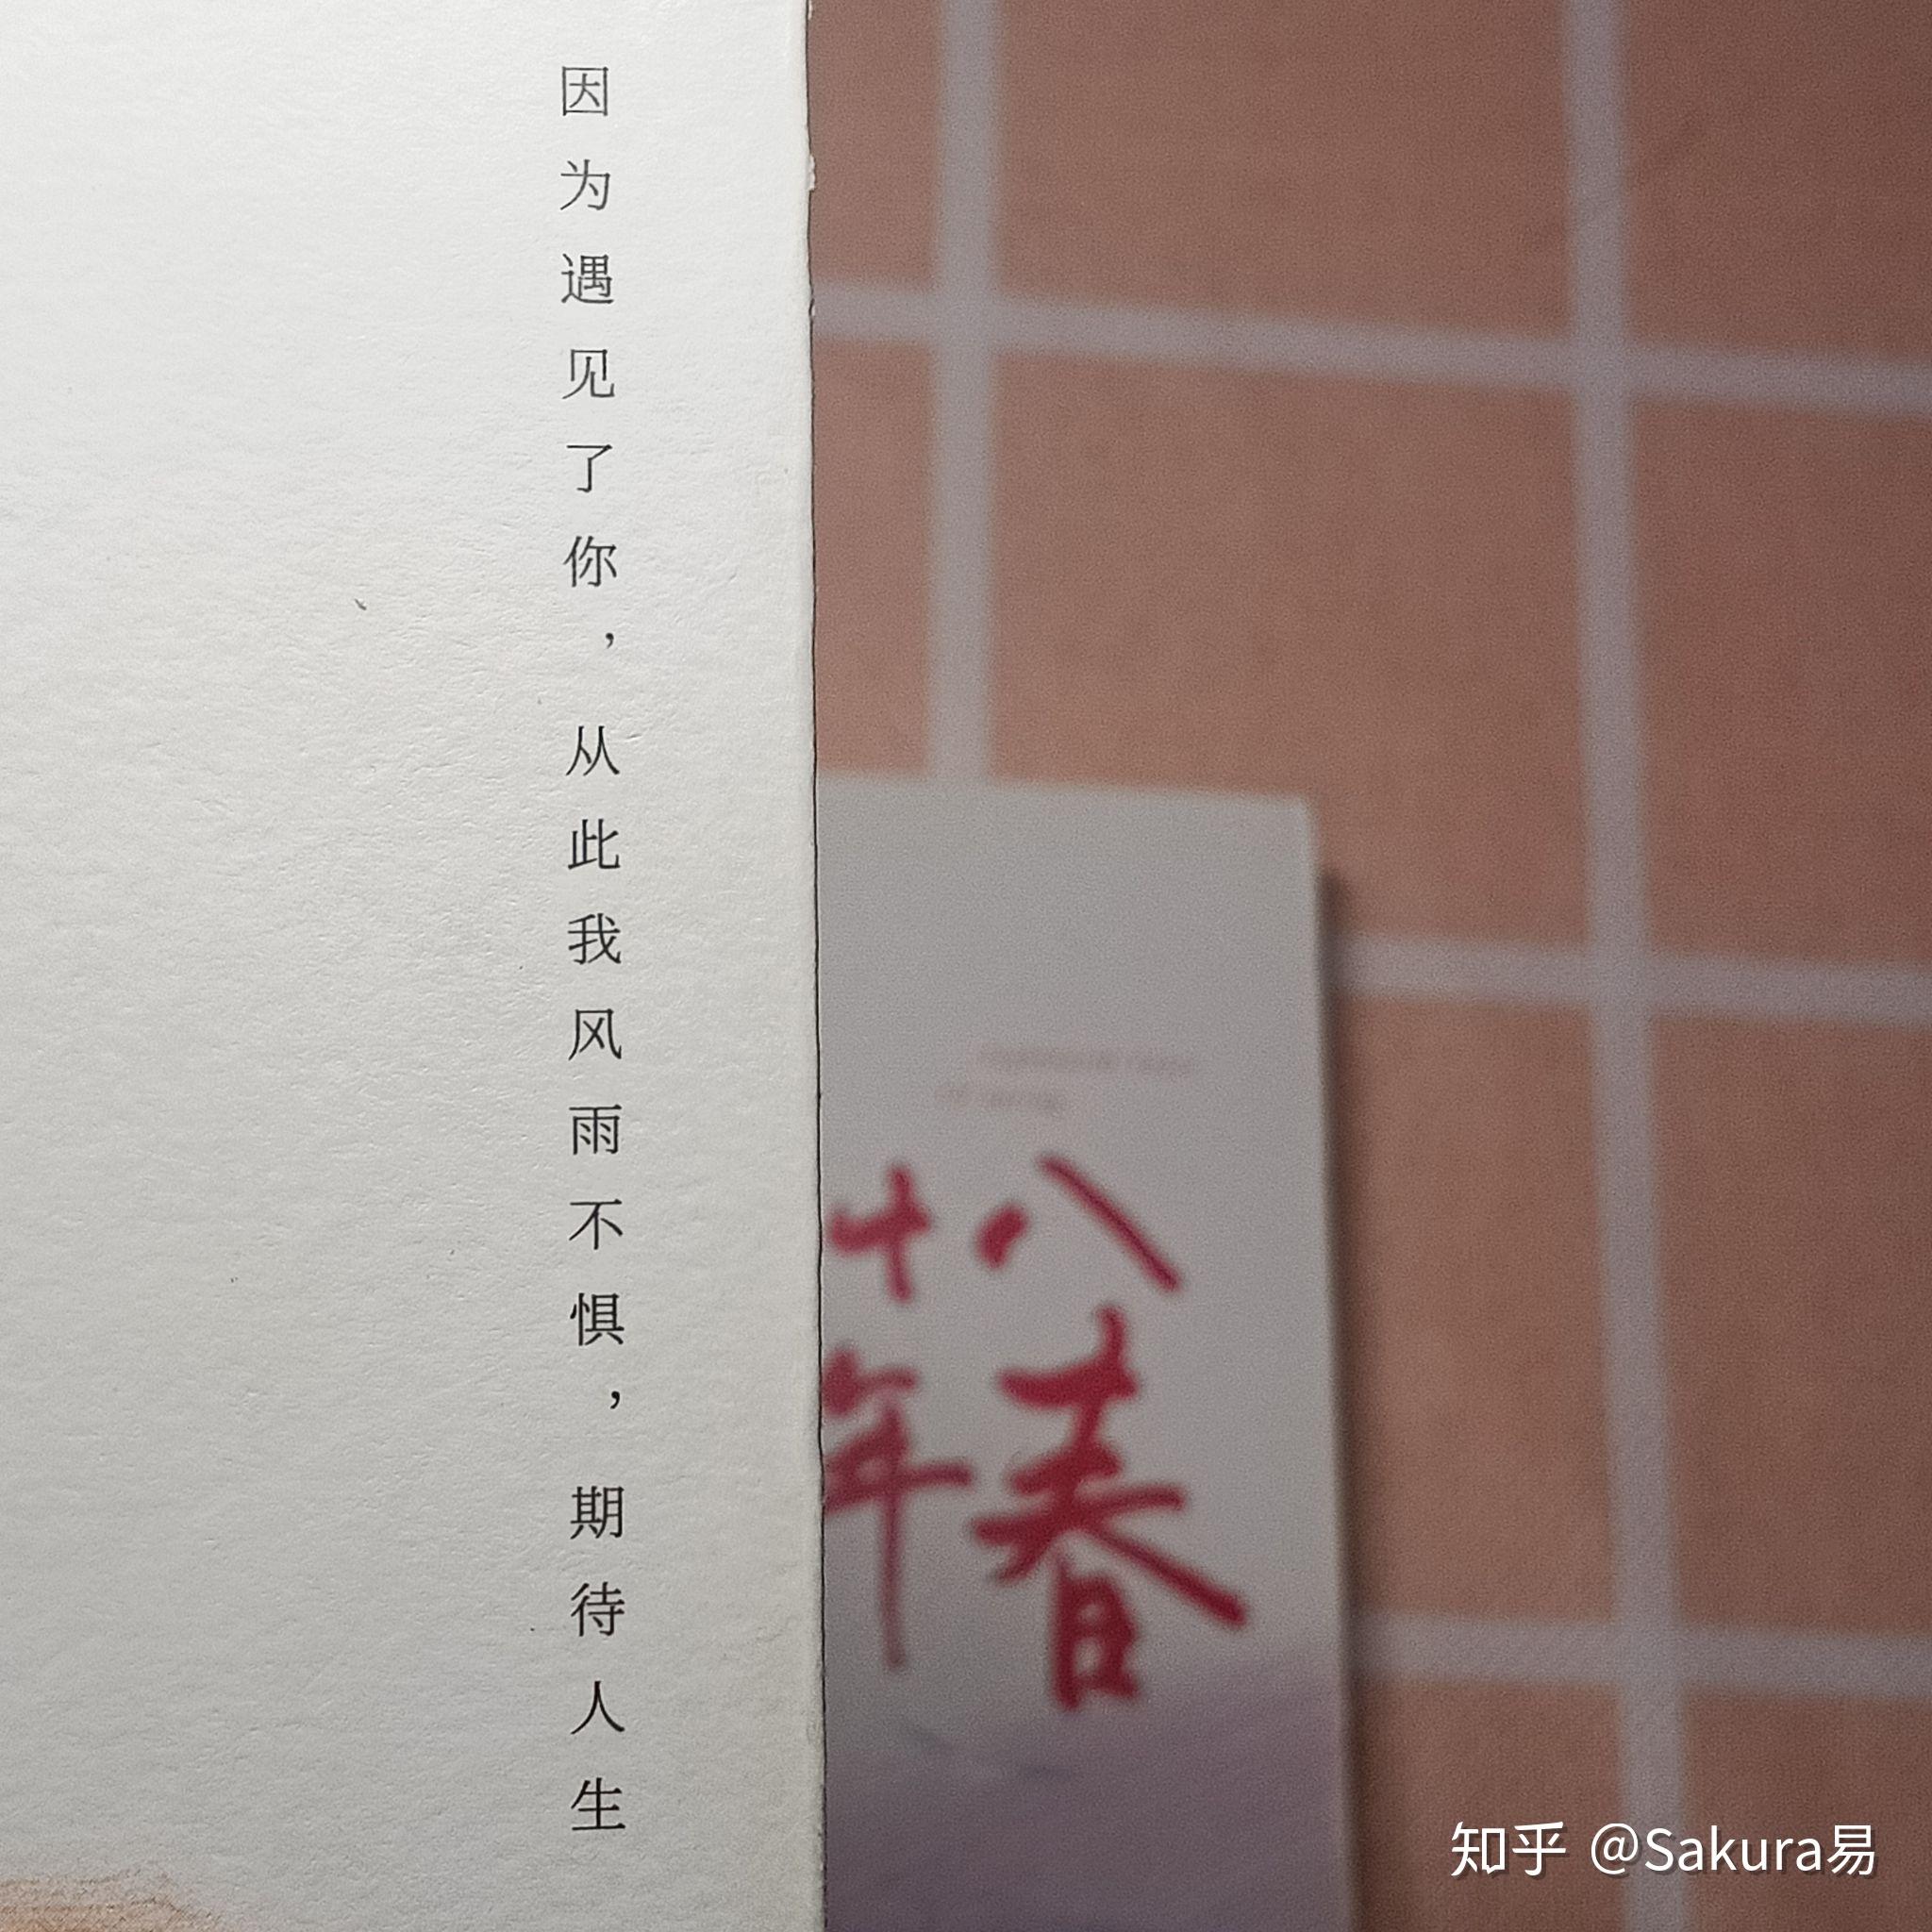 因为遇见了你，从此我风雨不惧，期待人生
十八
年春
知乎 @Sakura易